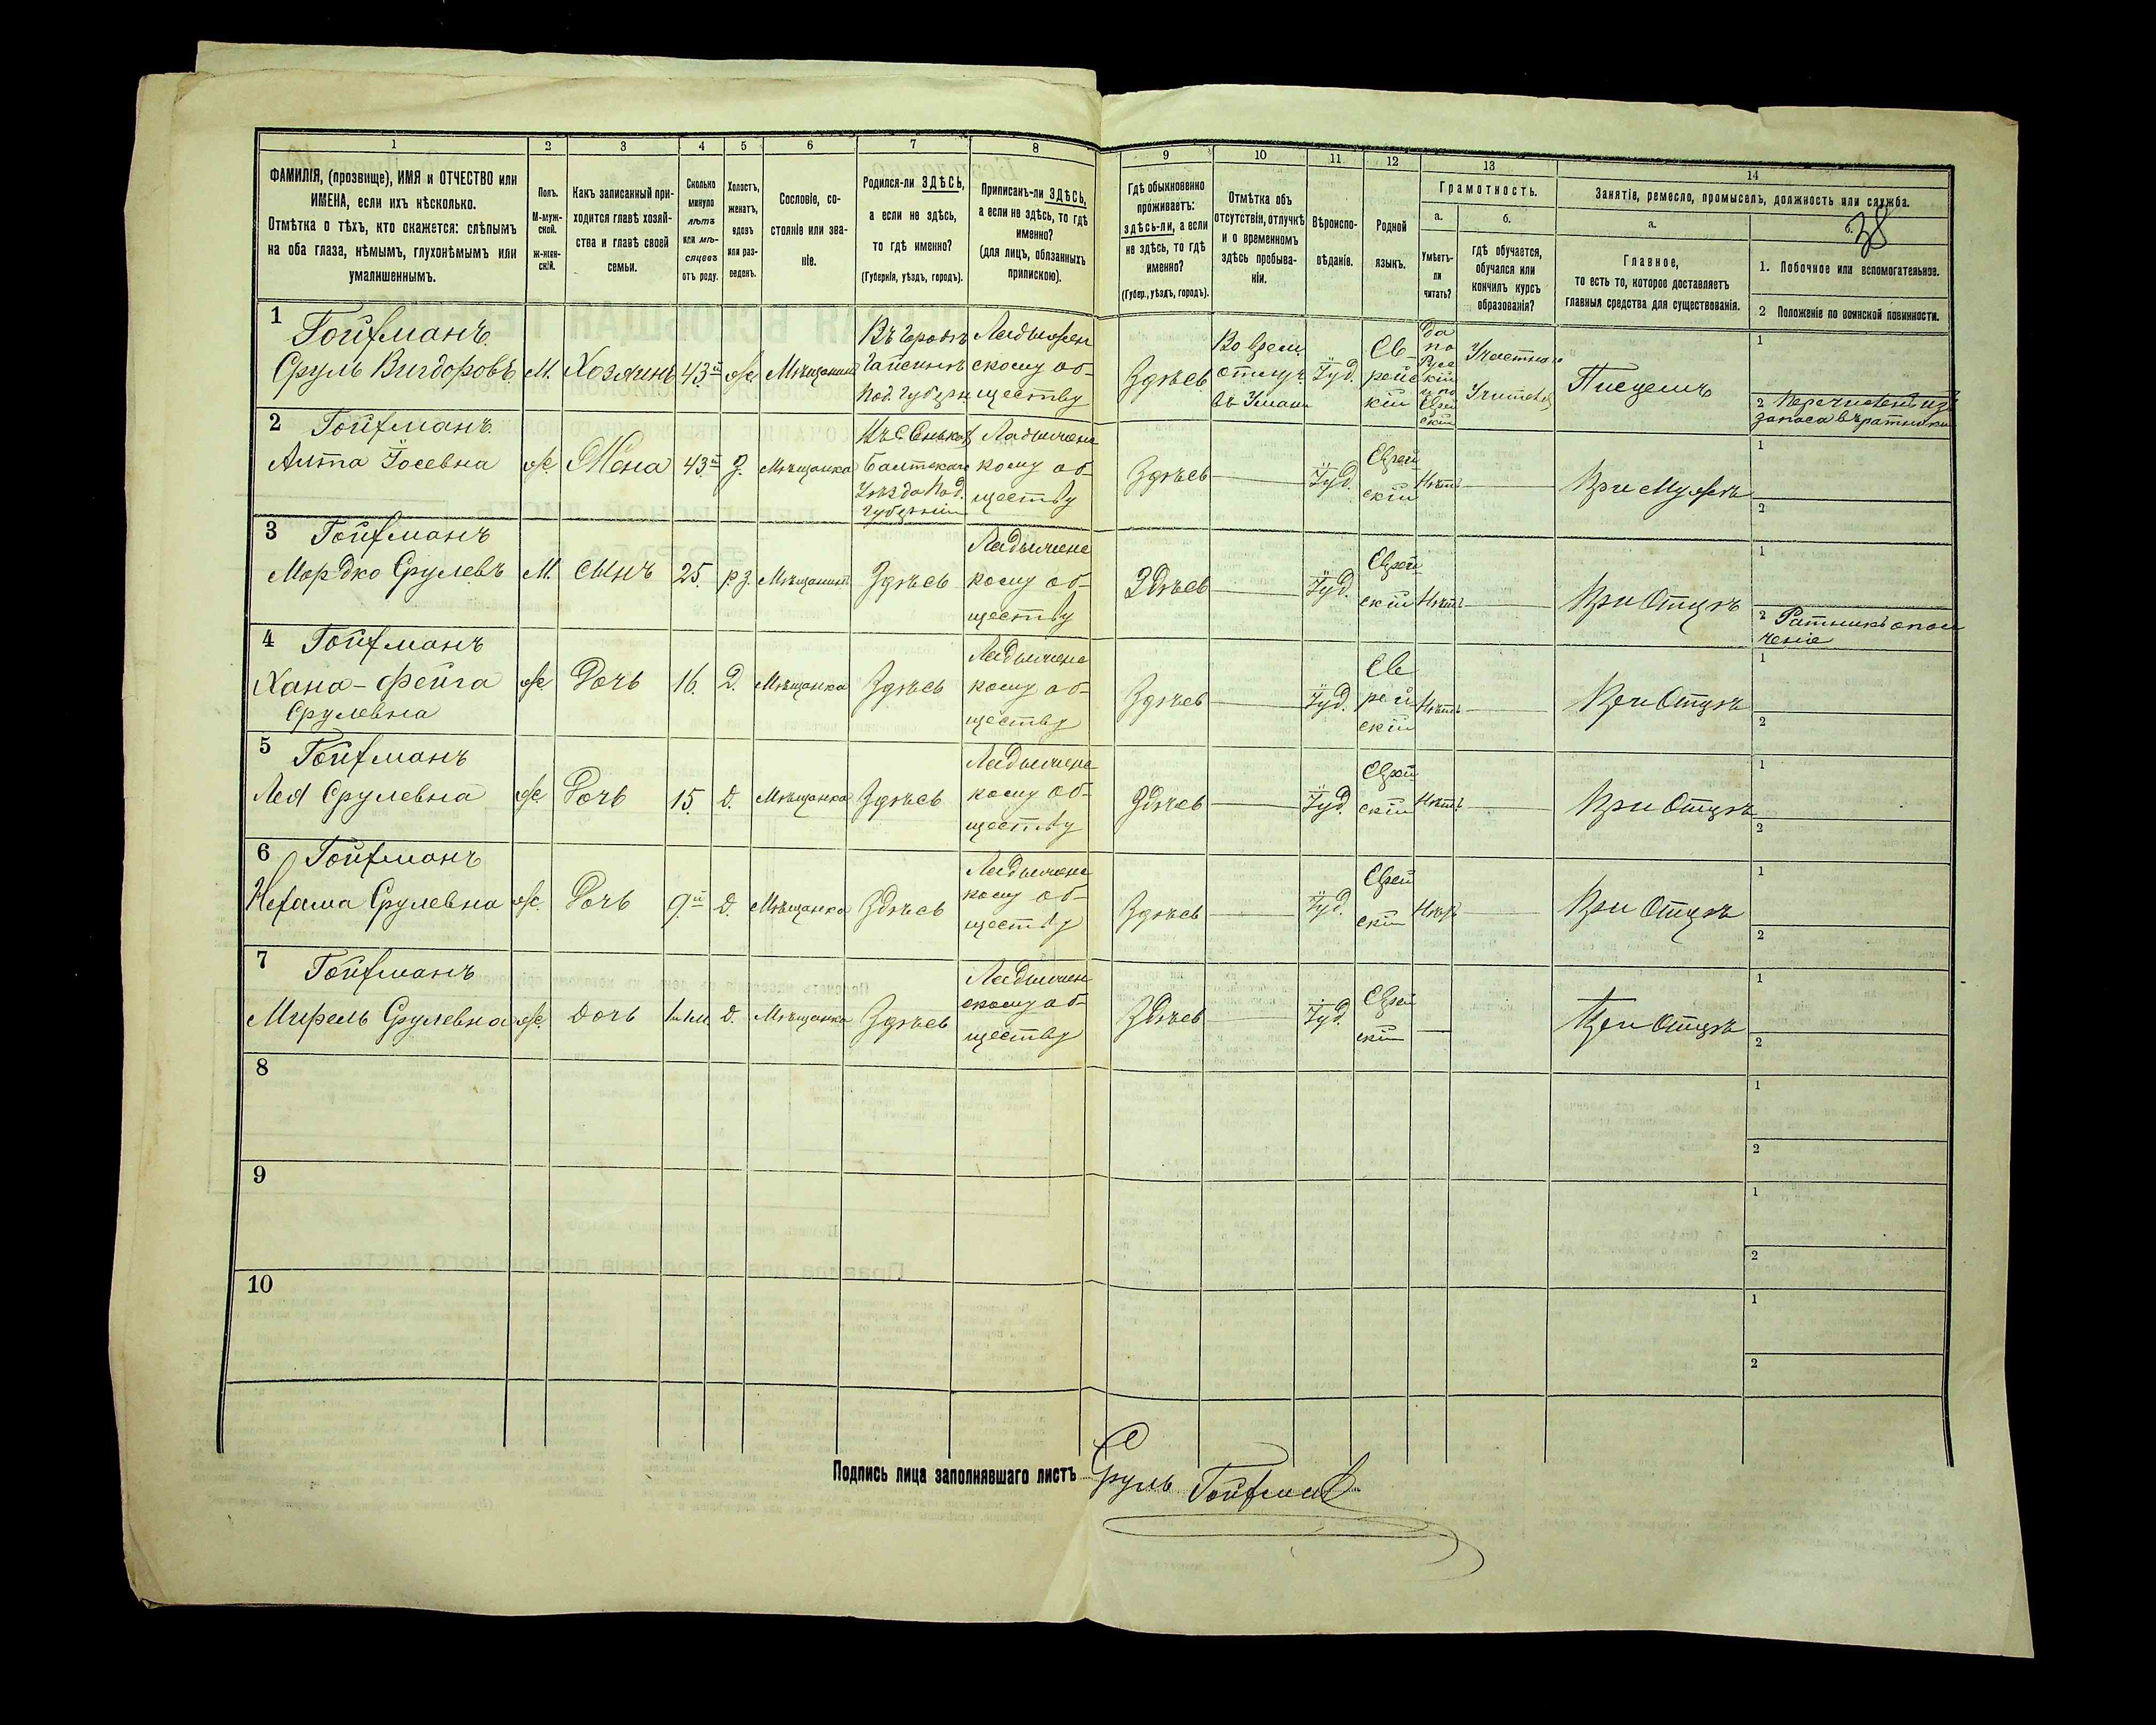 1
2
3
4
5
6
7
8
9
10
11
12
13
14
ФАМИЛІЯ, (прозвище), ИМЯ и ОТЧЕСТВО или
ИМЕНА, если ихъ нѣсколько.
Отмѣтка о тѣхъ, кто окажется: слѣпымъ
на оба глаза, нѣмымъ, глухонѣмымъ или
умалишеннымъ.
Полъ.
М-муж-
ской.
Ж-жен-
скій.
Какъ записанный при-
ходится главѣ хозяй-
ства и главѣ своей
семьи.
Сколько
минуло
лѣтъ
или мѣ-
сяцевъ
отъ роду.
Холостъ,
женатъ,
вдовъ
или раз-
веденъ.
Сословіе, со-
стояніе или зва-
ніе.
Родился-ли ЗДѢСЬ,
а если не здѣсь,
то гдѣ именно?
(Губернія, уѣздъ, городъ).
Приписанъ-ли ЗДѢСЬ,
а если не здѣсь, то гдѣ
именно?
(для лицъ, обязанныхъ
припискою).
Гдѣ обыкновенно
проживаетъ:
здѣсь-ли, а если
не здѣсь, то гдѣ
именно?
(Губер., уѣздъ, городъ).
Отмѣтка объ
отсутствіи, отлучкѣ
и о временномъ
здѣсь пребыва-
ніи.
Вѣроиспо-
вѣданіе.
Родной
языкъ.
Грамотность.
а.
Умѣетъ-
ли
читать?
б.
гдѣ обучается,
обучался или
кончилъ курсъ
образованія?
Занятіе, ремесло, промыселъ, должность или служба.
а.
Главное,
то есть то, которое доставляетъ
главныя средства для существованія.
б.
38
1. Побочное или вспомогательное.
2 Положеніе по воинской повинности.
1
Гойфманъ
Сруль Вигдоровъ
М.
Хозяинъ
43й
ж
Мѣщанинъ
Въ городѣ
Гайсинѣ
Под. Губерн.
Ладыжен
скому об-
ществу
Здѣсь
Во врем.
отлуч.
въ Умань
Іуд.
Ев-
рейс
кій
Да
по
Русс
кій
и по
Еврей
скій
Участнаго
Учителя
Писцемъ
1
2 Перечисленъ изъ
запаса въ ратники
2
Гойфманъ
Алта Іосевна
ж.
Жена
43й
З.
Мѣщанка
Балтскаго
Уѣзда Под.
Губерніи
Ладыженс
кому об-
ществу
Здѣсь
Іуд.
Еврей
скій
Нѣтъ
При Мужѣ
1
2
3
Гойфманъ
Мордко Срулевъ
М.
сынъ
25.
рз.
Мѣщанинъ
Здѣсь
Ладыженс
кому об-
ществу
Здѣсь
Іуд.
Еврей
скій
Нѣтъ
При Отцѣ
1
2 Ратникъ опол
ченіе
4
Гойфманъ
Хана-Фейга
Срулевна
ж
Дочь
16.
Д.
Мѣщанка
Здѣсь
Ладыженс
кому об-
ществу
Здѣсь
Іуд.
Ев
рей
скій
Нѣтъ
При Отцѣ
1
2
5
Гойфманъ
Лея Срулевна
ж.
Дочь
15.
д.
Мѣщанка
Здѣсь
Ладыженс
кому об-
ществу
Здѣсь
Іуд.
Еврей
скій
Нѣтъ
При Отцѣ
1
2
6
Гойфманъ
Нехама Срулевна
ж.
Дочь
9й
д.
Мѣщанка
Здѣсь
Ладыженс
кому об-
ществу
Здѣсь
Іуд.
Еврей
скій
Нѣтъ
При Отцѣ
1
2
7
Гойфманъ
Мирель Срулевна
ж.
дочь
д.
Мѣщанка
Здѣсь
Ладыжен
скому об-
ществу
Здѣсь
Іуд.
Еврей
скій
При Отцѣ
1
2
8
1
2
9
1
2
10
1
2
Подпись лица заполнявшаго листъ Сруль Гойфман